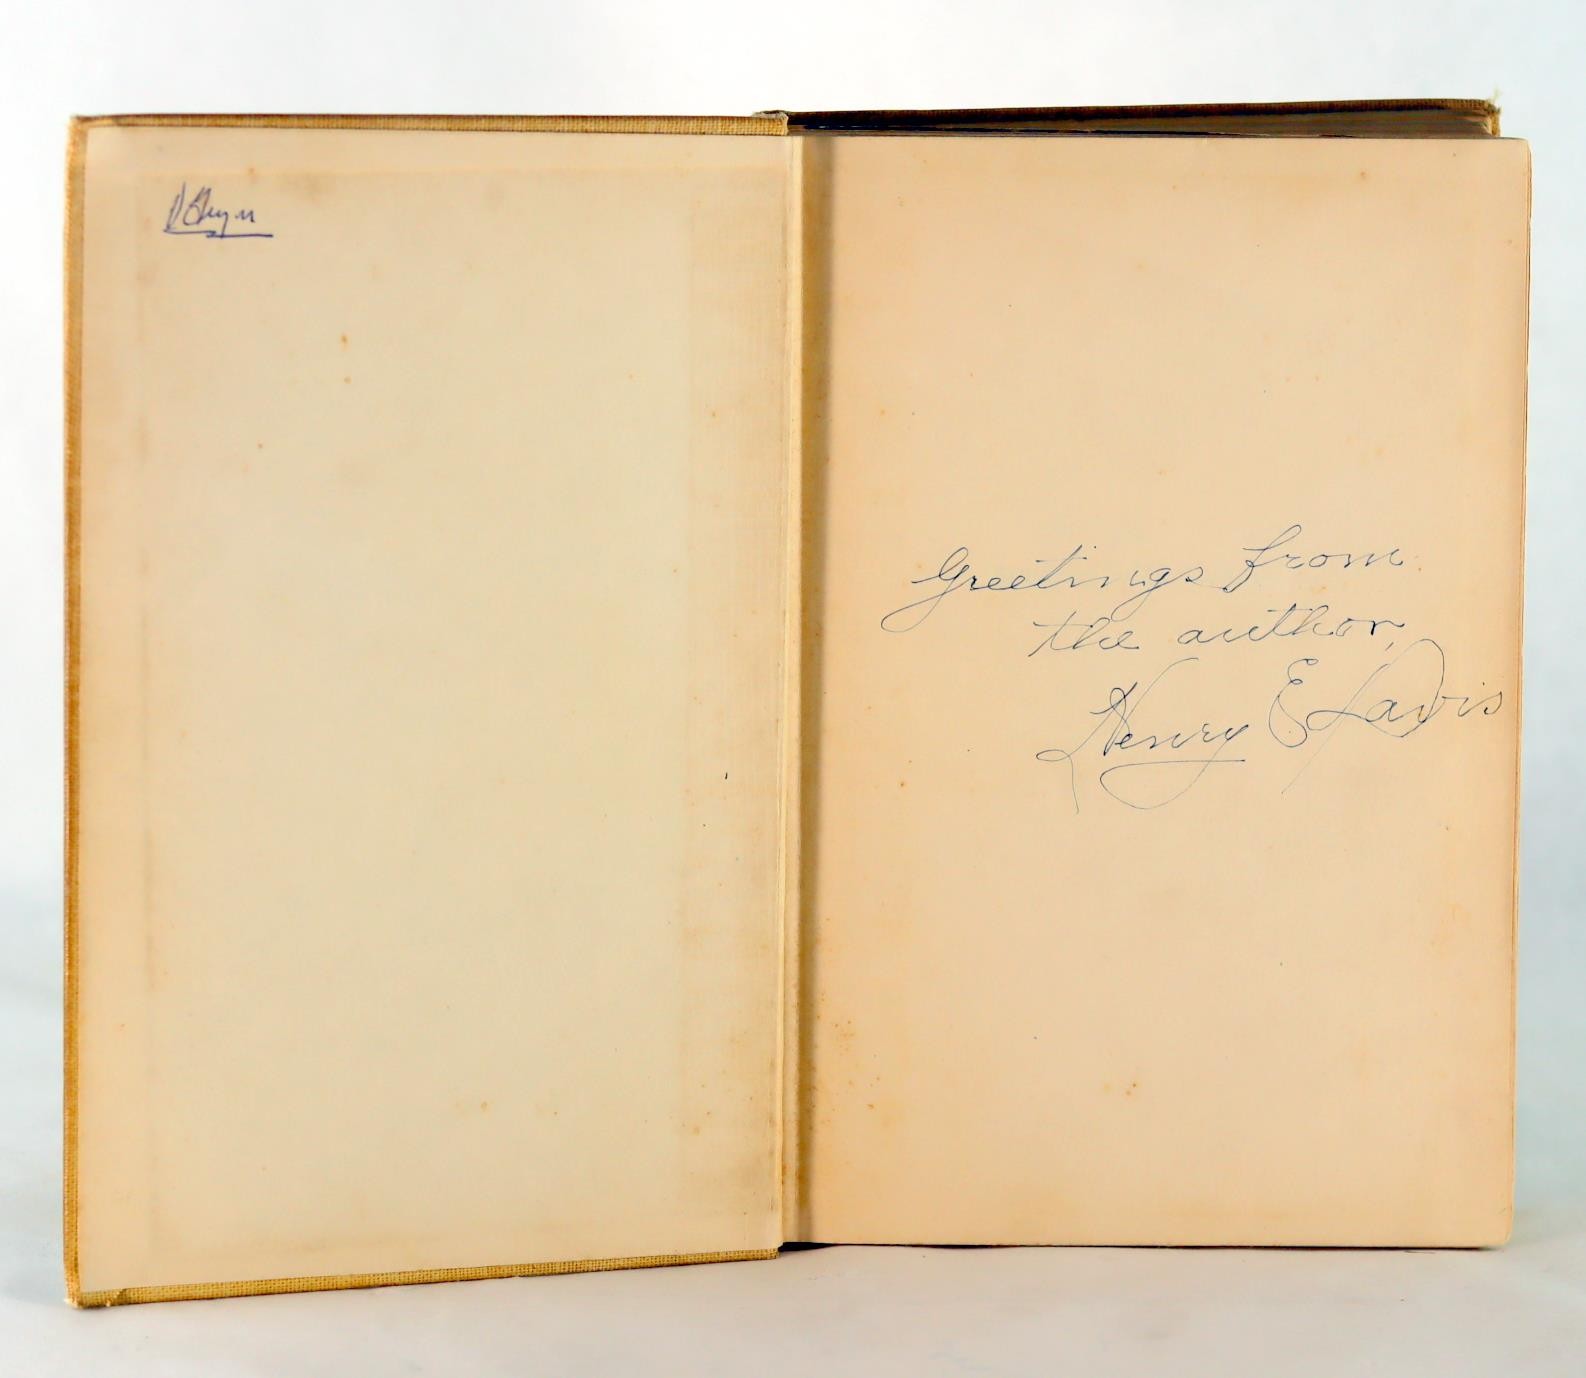 Greetings from
the author,
Henry E Davis